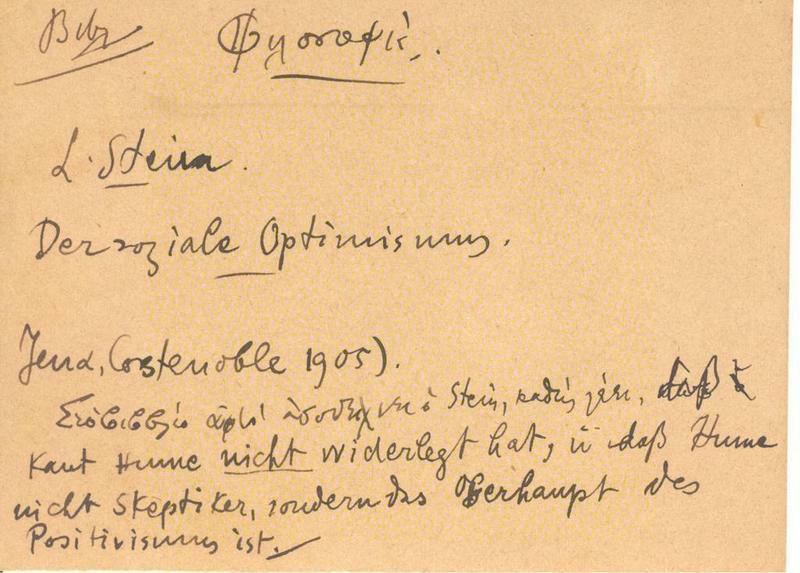 Βιβλ Φιλοσοφία.
L. Stein.
Der soziale Optimismus.
Jena, Costenoble 1905).
Στὸ βιβλίο αὐτὸ ἀποδείχνει ὁ Stein, καθὼς λέει,
Kant Hume nicht widerlegt hat, ü daß Hume
nicht Skeptiker, sondern das Oberhaupt des
Positivismus ist.